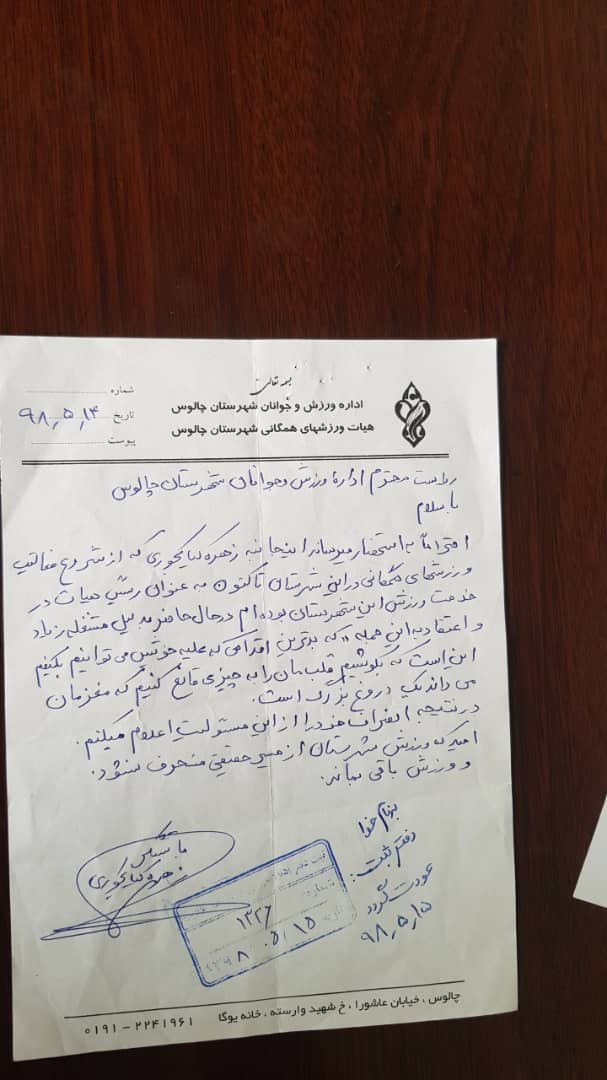 بسمه تعالی
اداره ورزش و جوانان شهرستان چالوس
هیات ورزشهای همگانی شهرستان چالوس
شماره
تاریخ ۹۸٫۵٫۱۴
پیوست
ریاست محترم اداره ورزش و جوانان شهرستان چالوس
با سلام
احتراماً به استحضار میرساند اینجانبه زهره کیاکجوری که از شروع فعالیت
ورزشهای همگانی در این شهرستان تاکنون به عنوان رئیس هیات در
خدمت ورزش این شهرستان بوده ام در حال حاضر به دلیل مشغله زیاد
و اعتقاد به این جمله "که بدترین اقدامی که علیه خویش می توانیم بکنیم
این است که بکوشیم قلب مان را به چیزی قانع کنیم که مغزمان
می داند یک دروغ بزرگ است.
در نتیجه انصراف خود را از این مسئولیت اعلام میکنم.
امید که ورزش شهرستان از مسیر حقیقی منحرف نشود.
و ورزش باقی بماند.
با تشکر
زهره کیاکجوری
بنام خدا
دفتر ثبت:
عودت گردد
۹۸٫۵٫۱۵
شماره
۱۳۲۶
۱۳۹۸/۰۵/۱۵
چالوس ، خیابان عاشورا ، خ شهید وارسته ، خانه یوگا ۲۲۴۱۹۶۱ – ۰۱۹۱